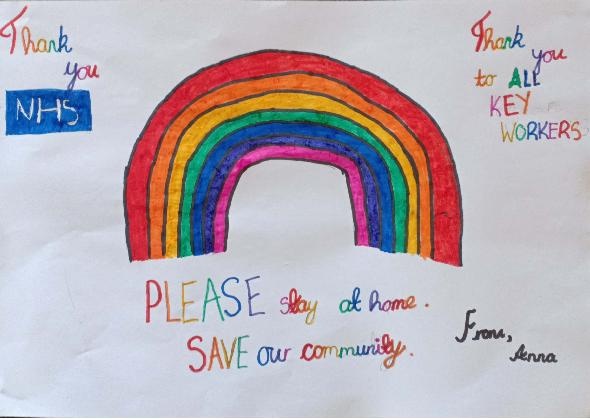 Thank
you
NHS
Thank
you
to ALL
KEY
WORKERS
PLEASE stay at home.
SAVE our community.
From,
Anna